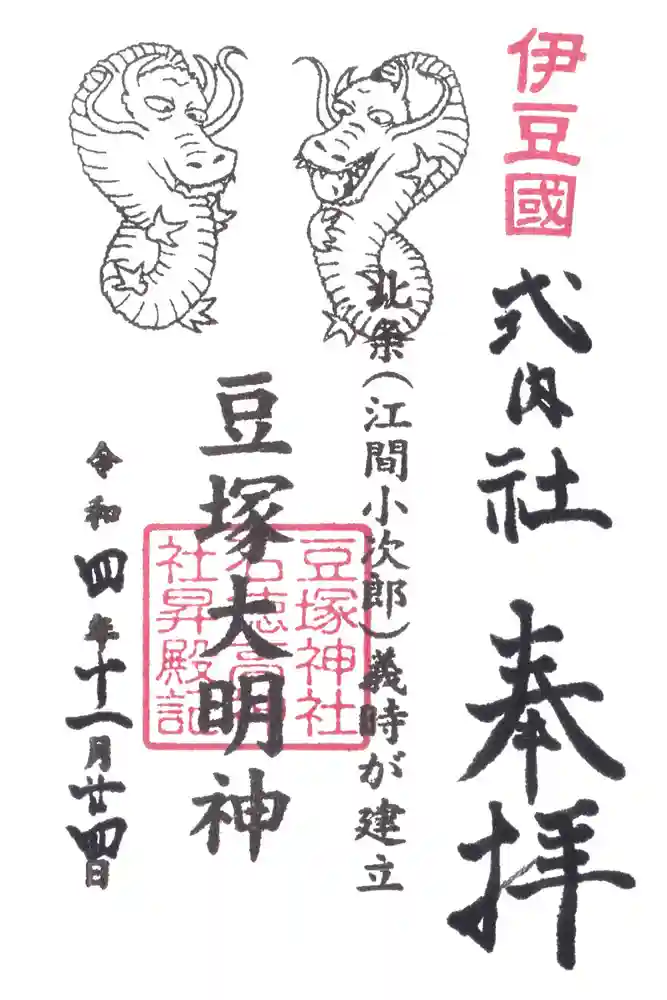 伊豆國
式内社 奉拝
北条(江間小次郎)義時が建立
豆塚大明神
豆塚神社
社昇殿記
令和四年十一月廿四日